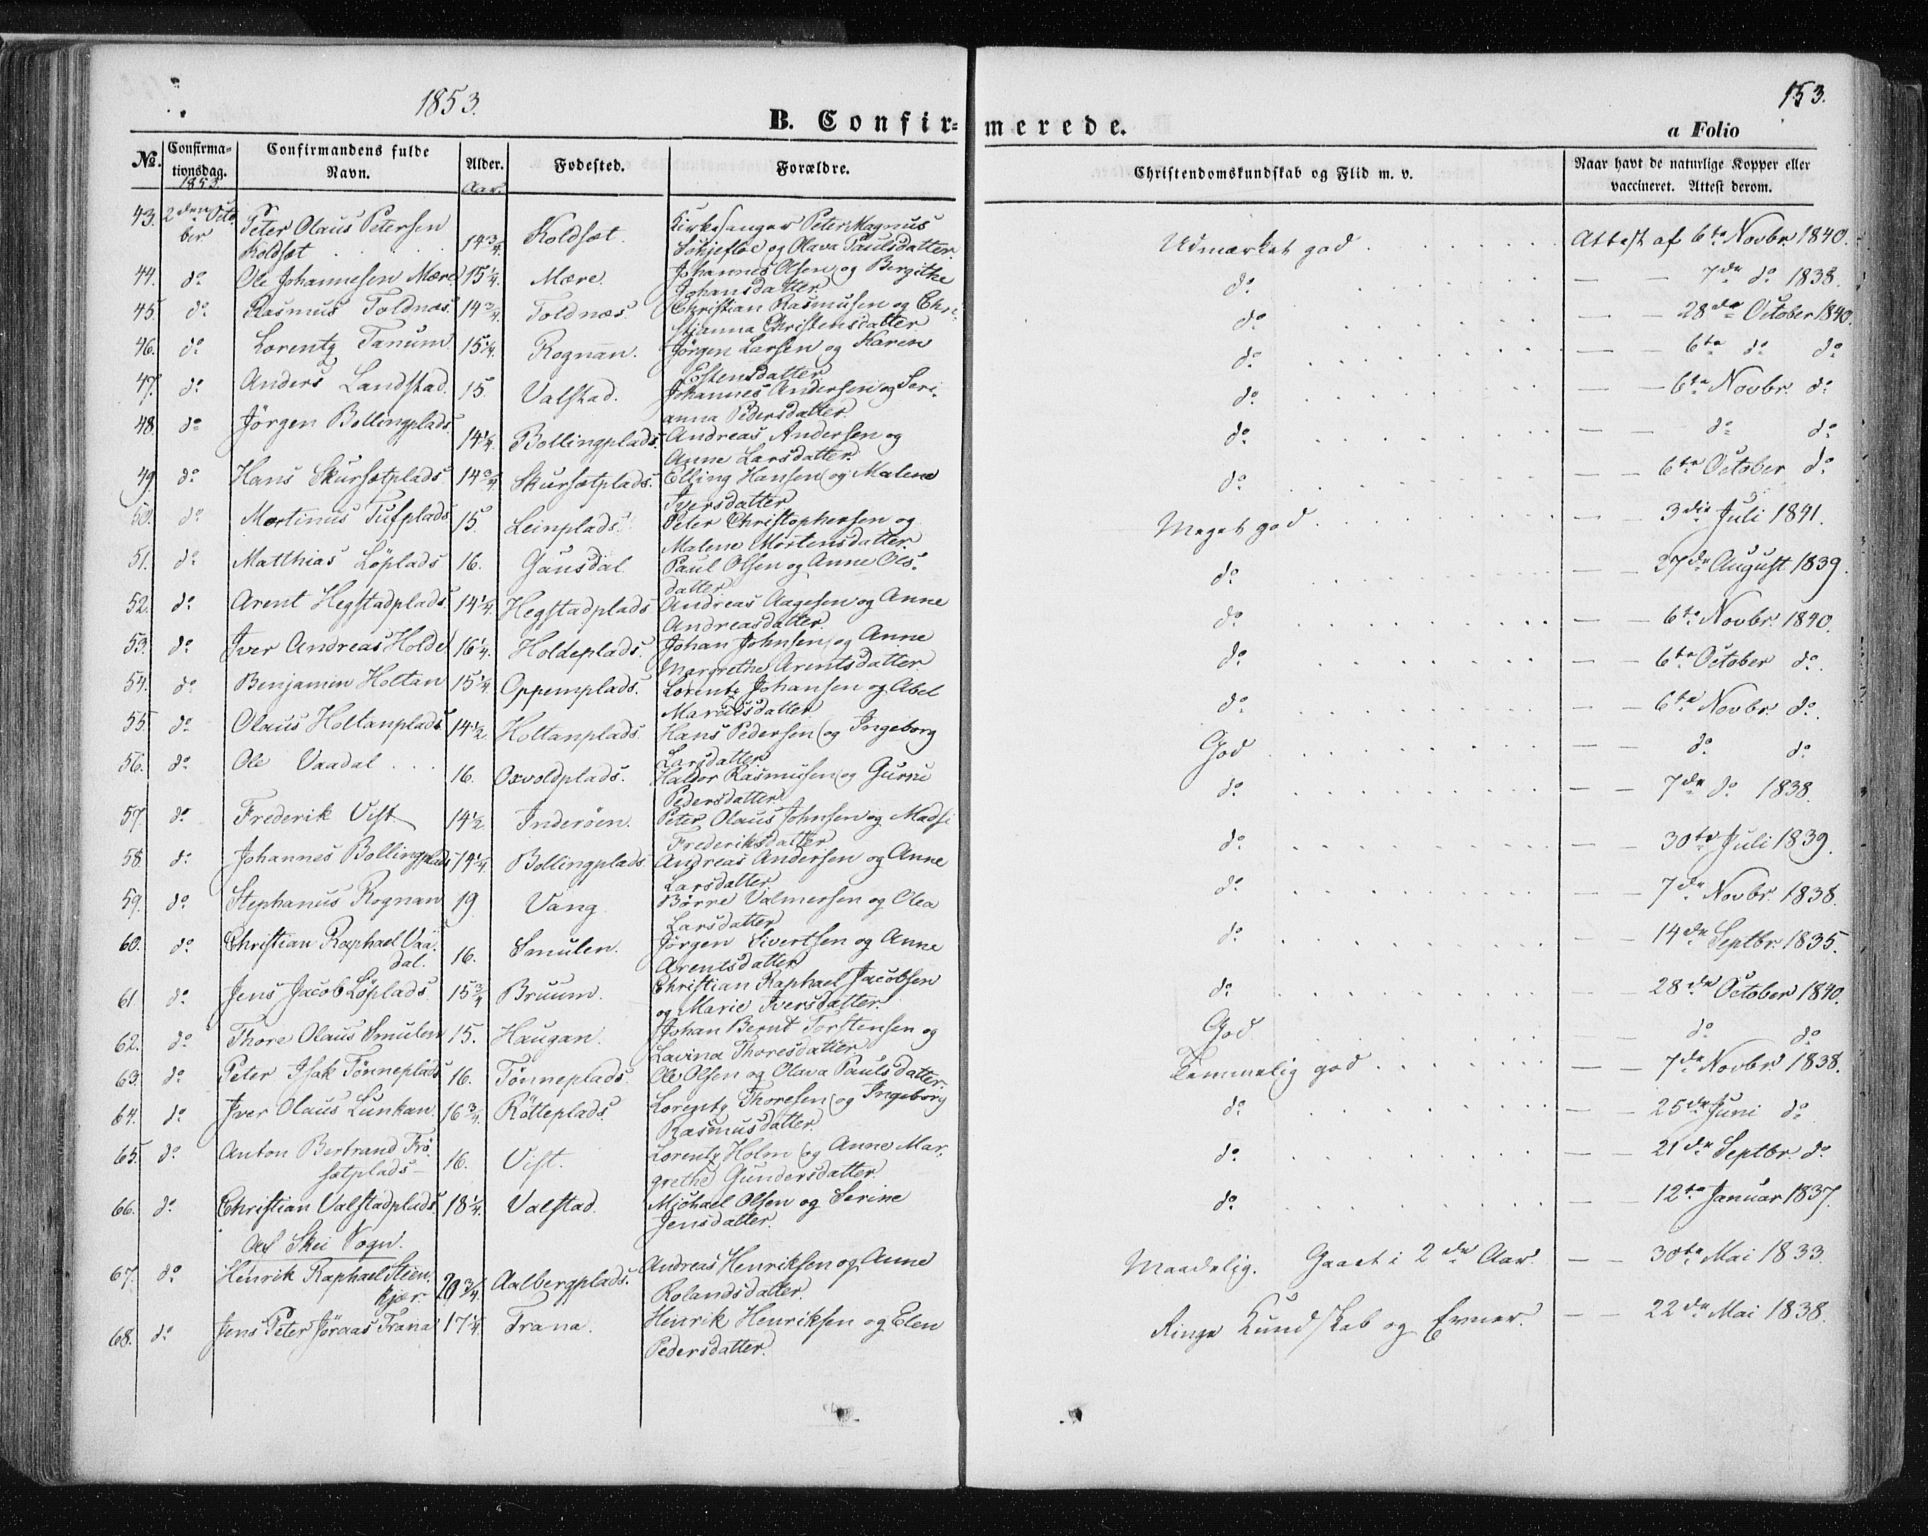 1853.
153.
B. Confirmerede.
a Folio
No. | Confirmationsdag. | Confirmandens fulde Navn. | Alder. | Fødested. | Forældre. | Christendomskundskab og Flid m. v. | Naar havt de naturlige Kopper eller vaccineret. Attest derom.
1853 | Aar
43. | 2den October | Peter Olaus Petersen Koldsæt | 14 3/4 | Koldsæt. | Kirkesanger Peter Magnus og Olava Paulsdatter. | Udmærket god | Attest af 6te Novbr 1840.
44. | do | Ole Johannesen Mære | 15 1/4 | Mære. | Johannes Olsen og Bergithe Johansdatter | do | — — 7de do 1838.
45. | do | Rasmus Toldnæs. | 14 3/4 | Toldnæs | Christian Rasmusen og Christianna Christensdatter | do | — — 28de October 1840.
46. | do | Lorentz Tanum | 15 1/4 | Rognan. | Jørgen Larsen og Karen Estensdatter | do | — — 6te do do
47. | do | Anders Landstad. | 15. | Valstad. | Johannes Andersen og Serianna Pedersdatter | do | — — 6te Novbr. do
48. | do | Jörgen Bollingplads | 14 1/4 | Bollingplads. | Andreas Andersen og Anne Larsdatter. | do | — — do do
49. | do | Hans Skursætplads | 14 3/4 | Skursætplads. | Elling Hansen og Malene Iversdatter | do | — — 6te October do
50. | do | Martinus Tufplads | 15 | Leinplads | Peter Christophersen og Malene Mortensdatter. | Meget god | — — 3die Juli 1841.
51. | do | Matthias Löplads | 16. | Gausdal. | Paul Olsen og Anne Olsdatter. | do | — — 27de August 1839.
52. | do | Arent Hegstadplads. | 14 1/4 | Hegstadplads | Andreas Aagesen og Anne Andreasdatter | do | — — 6te Novbr. 1840.
53. | do | Iver Andreas Holde | 16 1/4. | Holdeplads. | Johan Johnsen og Anne Margrethe Arentsdatter | do | — — 6te October do.
54. | do | Benjamin Holtan | 15 1/4 | Oppemplads. | Lorents Johansen og Abel Marcusdatter | do | — — 6te Novbr do.
55. | do | Olaus Holtanplads | 14 1/2. | Holtanplads. | Hans Pedersen og Ingeborg Larsdatter | God | — — do do
56. | do | Ole Vaadal | 16. | Oxvoldplads. | Haldor Rasmusen og Gurine Pedersdatter | do | — — 7de do 1838.
57. | do | Frederik Vist | 14 1/2 | Inderøen. | Peter Olaus Johnsen og Madsi Frederiksdatter | do | — — 30te Juli 1839.
58 | do | Johannes Bollingplads | 14 1/4 | Bollingplads | Andreas Andersen og Anne Larsdatter | do | — — 7de Novbr. 1838.
59. | do | Stephanus Rognan | 19 | Vang. | Börre Valmersen og Olea Larsdatter | do | — — 14de Septbr 1835.
60. | do | Christian Raphael Vaadal. | 16. | Smulen. | Jørgen Sivertsen og Anne Arentsdatter | do | — — 28de October 1840.
61 | do | Jens Jacob Löplads | 15 3/4 | Bruum. | Christian Raphael Jacobsen og Marie Iversdatter. | God | — — do do
62. | do | Thore Olaus Smulen | 15. | Haugan. | Johan Bernt Torstensen og Lavina Thoresdatter | Temmelig god | — — 7de Novbr 1838.
63. | do | Peter Isak Tönneplads | 16. | Tönneplads. | Ole Olsen og Olava Paulsdatter. | do | — — 25de Juni do
64. | do | Iver Olaus Lunkan. | 16 3/4 | Rötteplads. | Lorentz Thoresen og Ingeborg Rasmusdatter. | do | — — 21de Septbr. do
65. | do | Anton Bertrand Frösætplads — | 16. | Vist. | Lorentz Holm og Anne Margrethe Gundersdatter. | do | — — 12te Januar 1837.
66. | do | Christian Valstadplads | 18 1/4. | Valstad. | Michael Olsen og Serine Jensdatter.
Af Skei Sogn.
67. | do | Henrik Raphael Steenkjær. | 20 3/4 | Aalbergplads. | Andreas Henriksen og Anne Rolandsdatter. | Maadelig. Gaaet i 2de Aar. | — — 30te Mai 1833.
68. | do | Jens Peter Jöraas Trana | 17 1/4 | Trana. | Henrik Henriksen og Elen Pedersdatter. | Ringe Kundskab og Evner. | — — 22de Mai 1838.